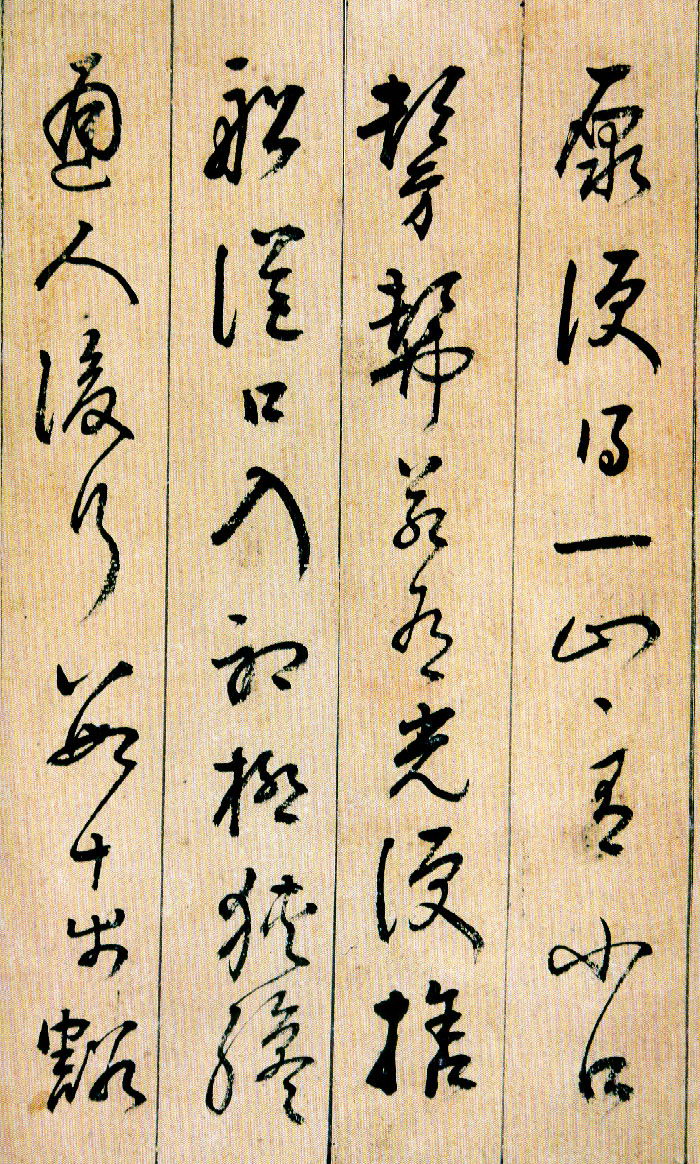 原便得一山〻有小口
髣髴若有光便捨
船從口入初極狹纔
通人復行數十步豁